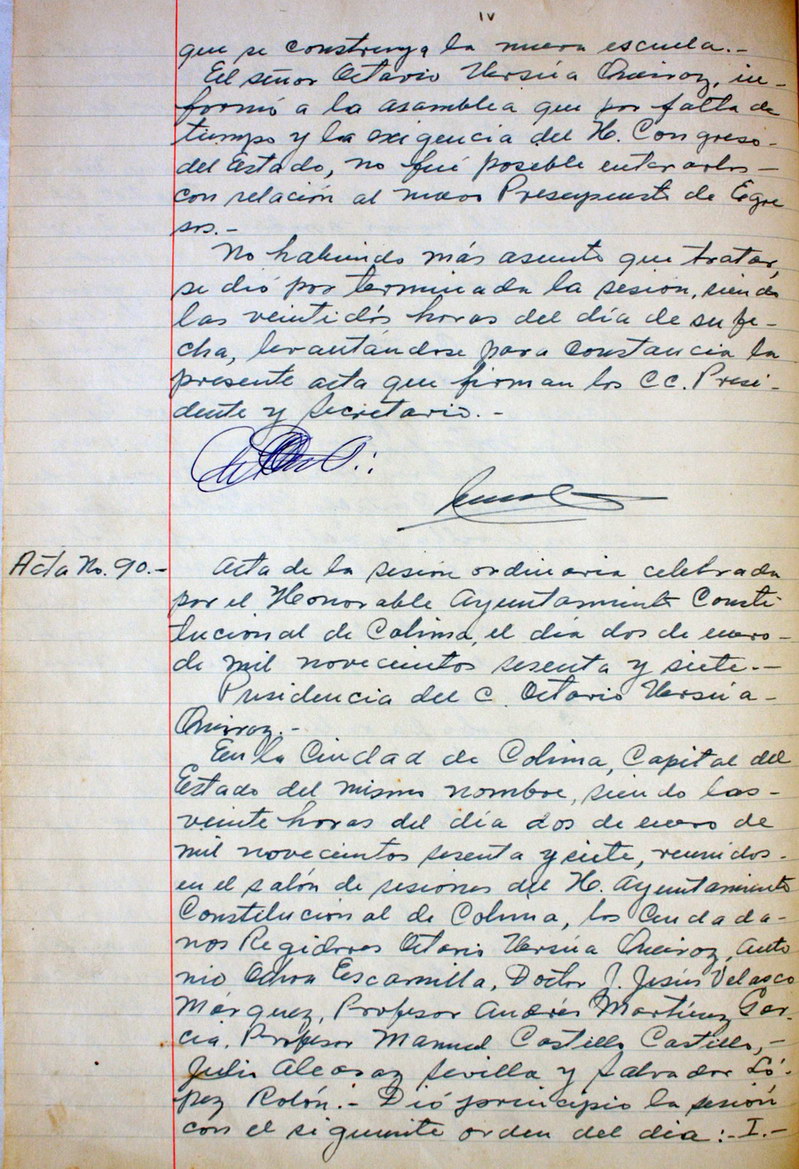 IV
que se construya la nueva escuela.-
El señor Octavio Urzúa Quiroz, in-
formó a la asamblea que por falta de
tiempo y la exigencia del H. Congreso-
del Estado, no fué posible enterarlos-
con relación al nuevo Presupuesto de Egre
sos.-
No habiendo más asunto que tratar,
se dió por terminada la sesión, siendo
las veintidós horas del día de su fe-
cha, levantándose para constancia la
presente acta que firman los CC. Presi-
dente y Secretario.-
Acta No. 90.-
Acta de la sesión ordinaria celebrada
por el Honorable Ayuntamiento Consti
tucional de Colima, el día dos de enero-
de mil novecientos sesenta y siete.-
Presidencia del C. Octavio Urzúa-
Quiroz.-
En la Ciudad de Colima, Capital del
Estado del mismo nombre, siendo las-
veinte horas del día dos de enero de
mil novecientos sesenta y siete, reunidos-
en el salón de sesiones del H. Ayuntamiento
Constitucional de Colima, los Ciudada-
nos Regidores Octavio Urzúa Quiroz, Anto
nio Ochoa Escamilla, Doctor J. Jesús Velasco
Márquez, Profesor Andrés Martínez Gar-
cía, Profesor Manuel Castillo Castillo,-
Julio Alcaraz Sevilla y Salvador Ló-
pez Rolón.- Dió principio la sesión
con el siguiente orden del día:- I.-